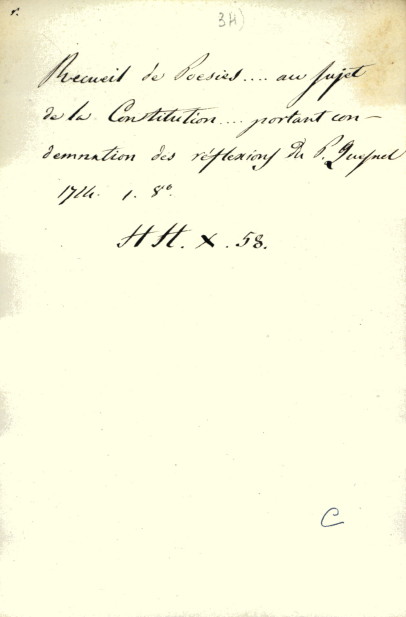 r.
34)
Recueil de Poesies.... au sujet
de la Constitution.... portant con-
demnation des réflexions du P. Quesnel
1714. 1. 8°.
HH. X. 58.
C